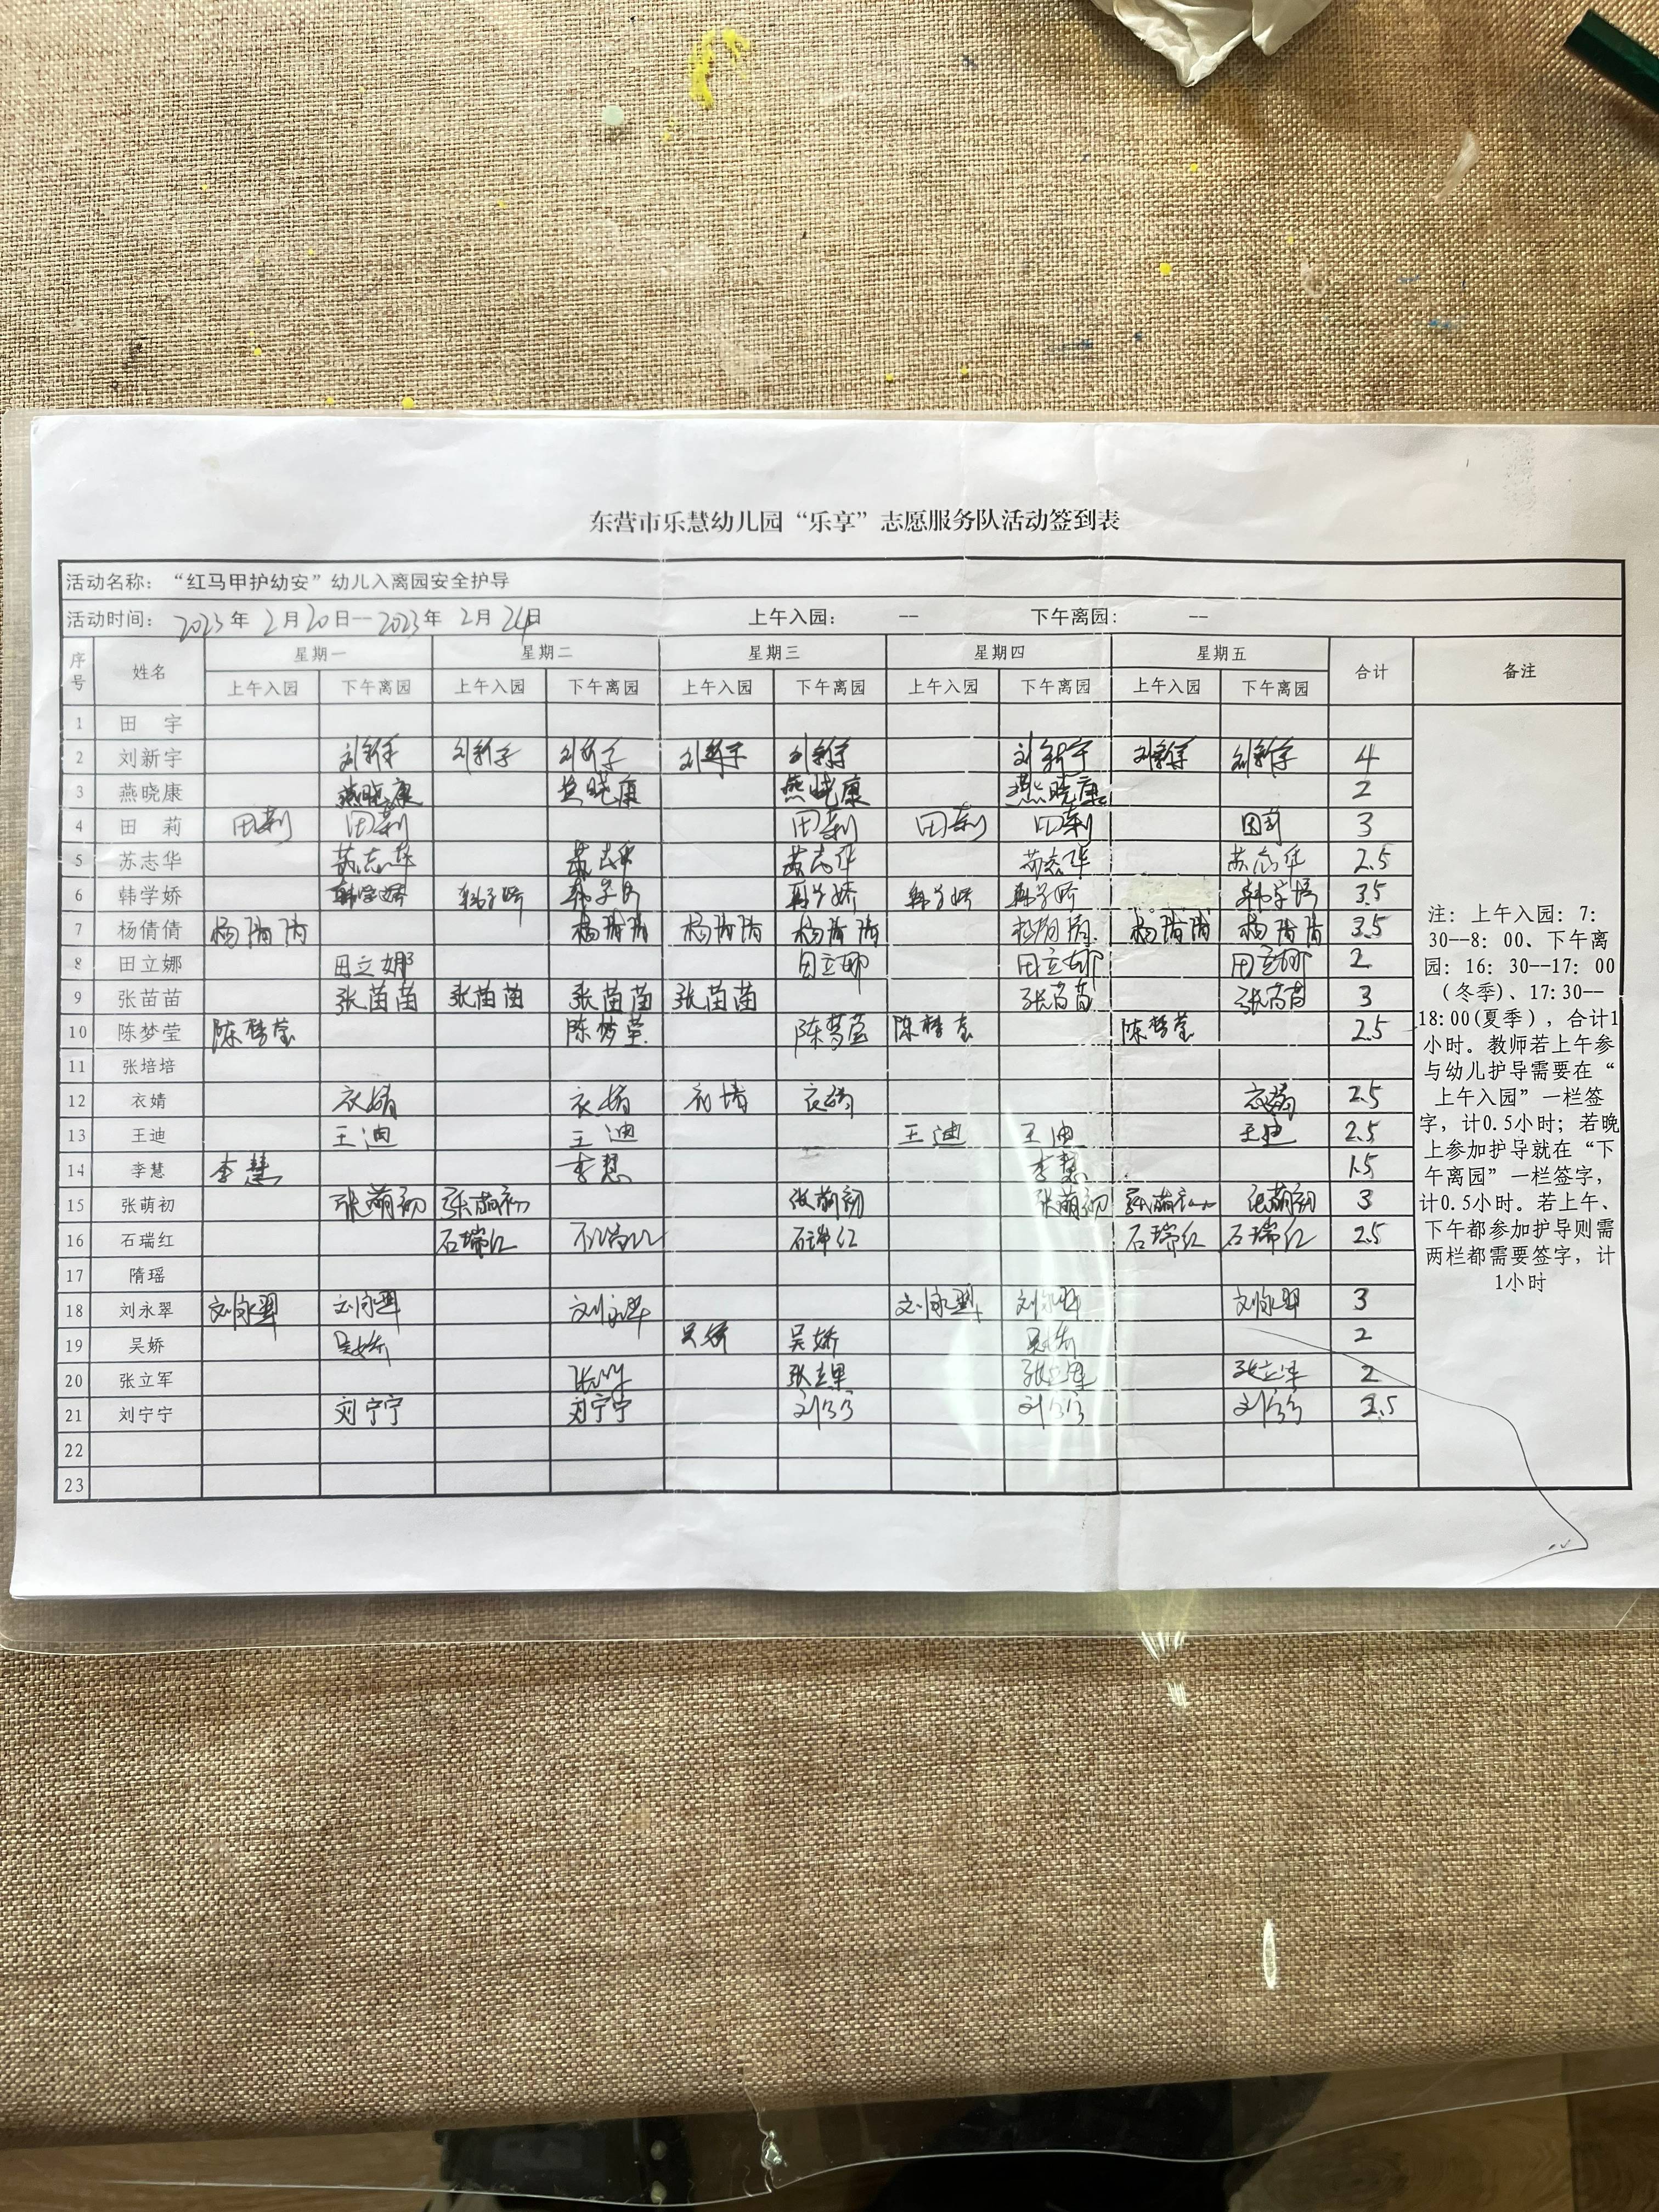 东营市乐慧幼儿园“乐享”志愿服务队活动签到表
活动名称：“红马甲护幼安”幼儿入离园安全护导
活动时间： 2023年 2月20日--2023年 2月24日 上午入园： -- 下午离园： --
序号 姓名 星期一 星期二 星期三 星期四 星期五 合计 备注
上午入园 下午离园 上午入园 下午离园 上午入园 下午离园 上午入园 下午离园 上午入园 下午离园
1 田 宇
2 刘新宇 刘新宇 刘新宇 刘新宇 刘新宇 刘新宇 刘新宇 刘新宇 刘新宇 4
3 燕晓康 燕晓康 燕晓康 燕晓康 燕晓康 2
4 田 莉 田莉 田莉 田莉 田莉 田莉 田莉 3
5 苏志华 苏志华 苏志华 苏志华 苏志华 苏志华 2.5
6 韩学娇 韩学娇 韩学娇 韩学娇 韩学娇 韩学娇 韩学娇 韩学娇 3.5
7 杨倩倩 杨倩倩 杨倩倩 杨倩倩 杨倩倩 杨倩倩 杨倩倩 杨倩倩 3.5
8 田立娜 田立娜 田立娜 田立娜 田立娜 2
9 张苗苗 张苗苗 张苗苗 张苗苗 张苗苗 张苗苗 张苗苗 3
10 陈梦莹 陈梦莹 陈梦莹 陈梦莹 陈梦莹 陈梦莹 2.5
11 张培培
12 衣婧 衣婧 衣婧 衣婧 衣婧 衣婧 2.5
13 王迪 王迪 王迪 王迪 王迪 王迪 2.5
14 李慧 李慧 李慧 李慧 1.5
15 张萌初 张萌初 张萌初 张萌初 张萌初 张萌初 张萌初 3
16 石瑞红 石瑞红 石瑞红 石瑞红 石瑞红 2.5
17 隋瑶
18 刘永翠 刘永翠 刘永翠 刘永翠 刘永翠 刘永翠 刘永翠 3
19 吴娇 吴娇 吴娇 吴娇 吴娇 2
20 张立军 张立军 张立军 张立军 2
21 刘宁宁 刘宁宁 刘宁宁 刘宁宁 刘宁宁 刘宁宁 2.5
22
23
注：上午入园：7：
30--8：00、下午离
园：16：30--17：00
(冬季)、17:30--
18:00(夏季)，合计1
小时。教师若上午参
与幼儿护导需要在“
上午入园”一栏签
字，计0.5小时；若晚
上参加护导就在“下
午离园”一栏签字，
计0.5小时。若上午、
下午都参加护导则需
两栏都需要签字，计
1小时